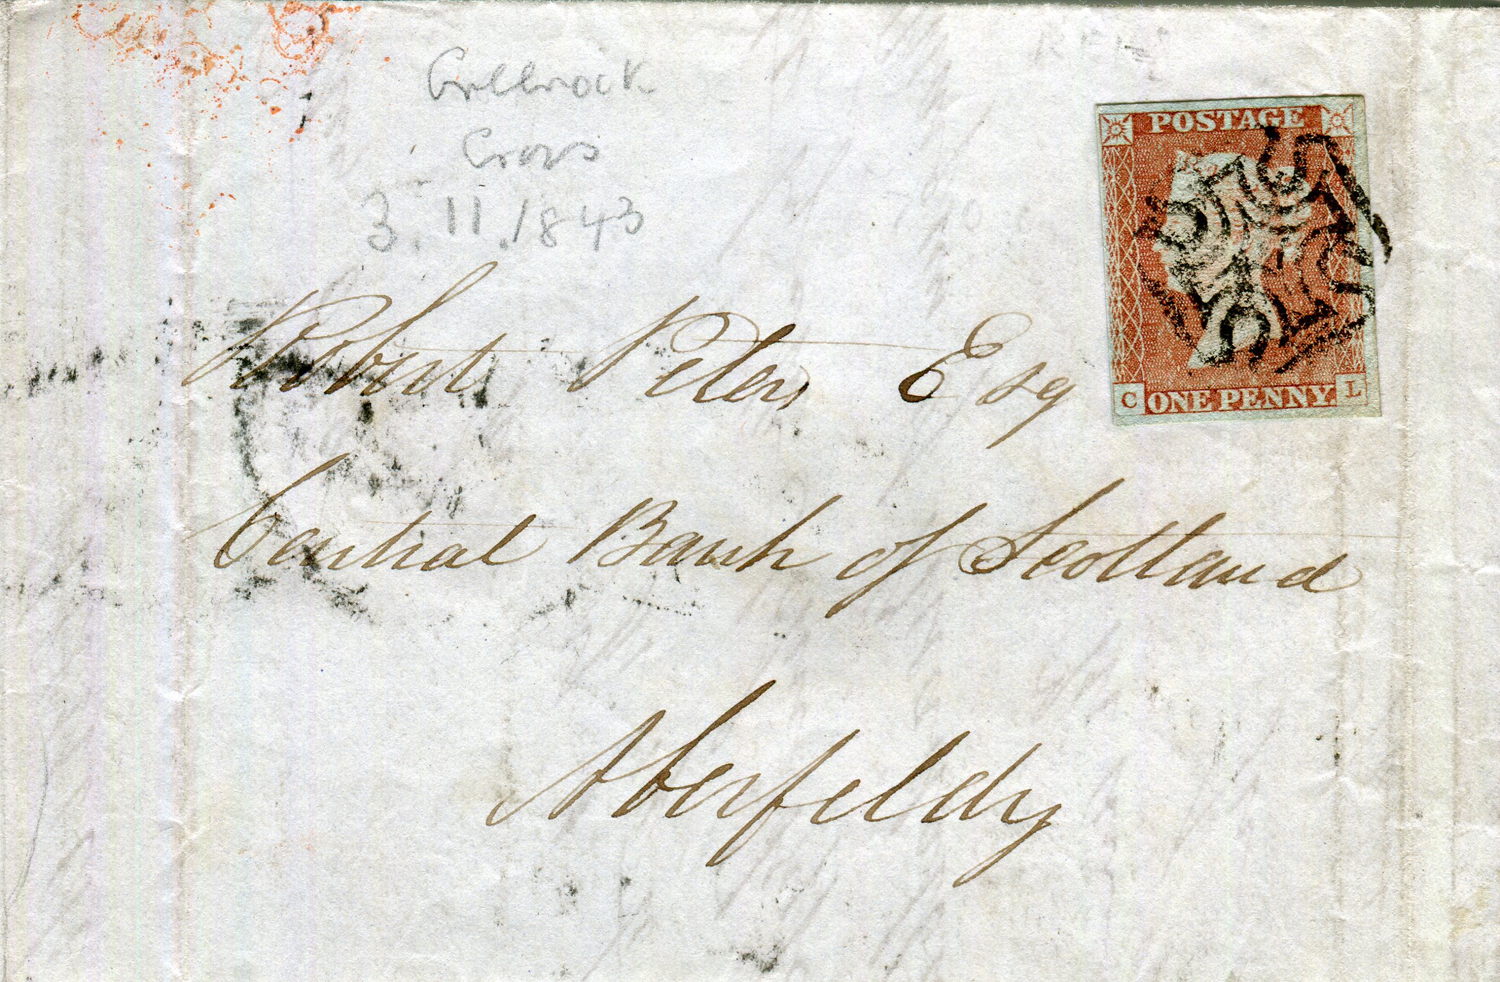 Greenock
Cross
3.11.1843
POSTAGE
C ONE PENNY L
Robert Peters Esq
Central Bank of Scotland
Aberfeldy